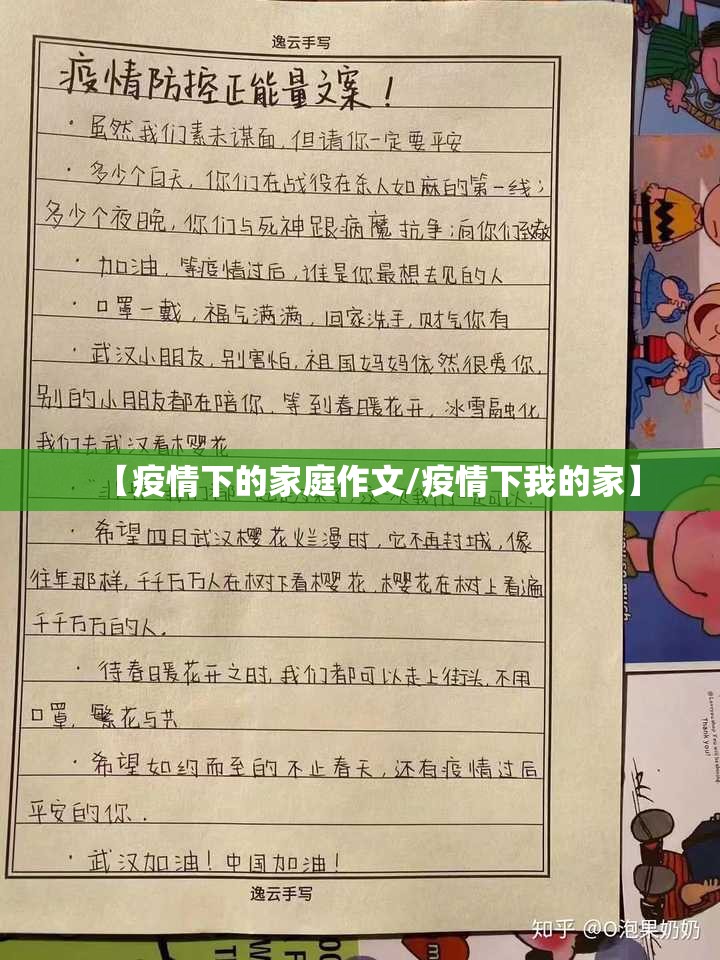 逸云手写
疫情防控正能量文案!
· 虽然我们素未谋面,但请你一定要平安
· 多少个白天,你们在战役在杀人如麻的第一线;
多少个夜晚,你们与死神跟病魔抗争;向你们致敬
· 加油,等疫情过后,谁是你最想去见的人
· 口罩一戴,福气满满,回家洗手,财气你有
· 武汉小朋友,别害怕,祖国妈妈依然很爱你,
别的小朋友都在陪你,等到春暖花开,冰雪融化
我们去武汉看樱花
【疫情下的家庭作文/疫情下我的家】
· 希望四月武汉樱花烂漫时,它不再封城,像
往年那样,千千万万人在树下看樱花,樱花在树上看遍
千千万万的人.
· 待春暖花开之时,我们都可以走上街头,不用
口罩,繁花与共
· 希望如约而至的不止春天,还有疫情过后
平安的你.
· 武汉加油!中国加油!
逸云手写
Thank you!
知乎 @O泡果奶奶